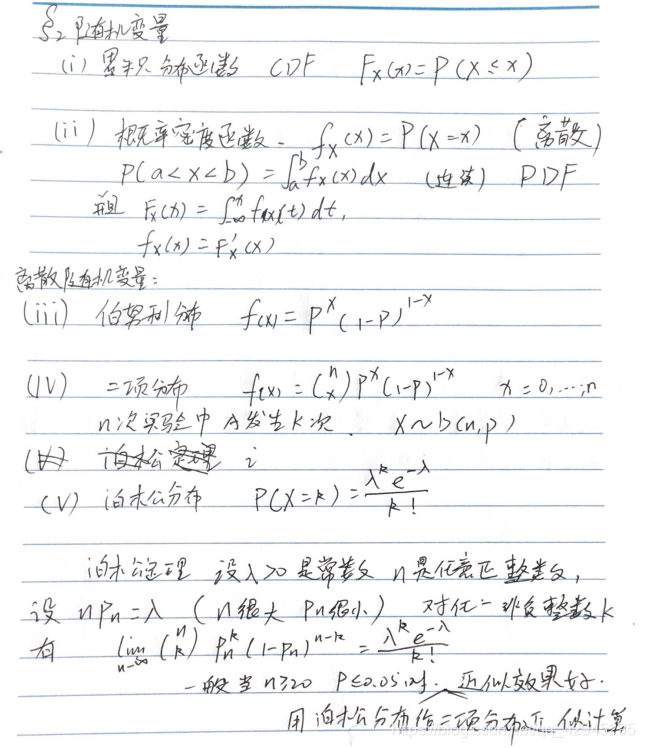 §2 随机变量
(i) 累积分布函数 CDF F_X(x) = P(X ≤ x)
(ii) 概率密度函数. f_X(x) = P(X=x) (离散)
P(a<x<b) = ∫_a^b f_X(x)dx (连续) PDF
且 F_X(x) = ∫_{-∞}^x f_X(t)dt,
f_X(x) = F'_X(x)
离散随机变量:
(iii) 伯努利分布 f(x) = p^x (1-p)^{1-x}
(IV) 二项分布 f(x) = (n x) p^x (1-p)^{1-x} x = 0, ..., n
n次实验中 A发生k次. X~b(n,p)
(V) 泊松定理 i
(V) 泊松分布 P(X=k) = λ^k e^{-λ} / k!
泊松定理 设λ>0是常数 n是任意正整数,
设 nPn=λ (n很大 Pn很小) 对任一非负整数k
有 lim_{n→∞} (n k) Pn^k (1-Pn)^{n-k} = λ^k e^{-λ} / k!
一般当 n≥20 P≤0.05时. 近似效果好.
用泊松分布作二项分布近似计算